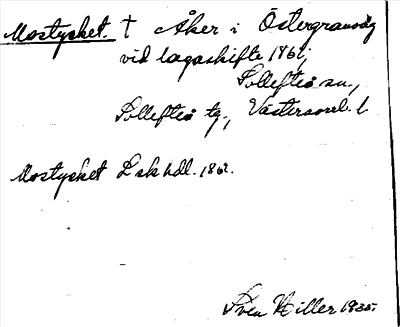 Mostycket. † Åker i Östergransdg
vid lagaskifte 1862;
Sollefteå sn.,
Sollefteå tg., Västernorrl. l
Mostycket Lskhdl. 1862.
Sven Hiller 1935.